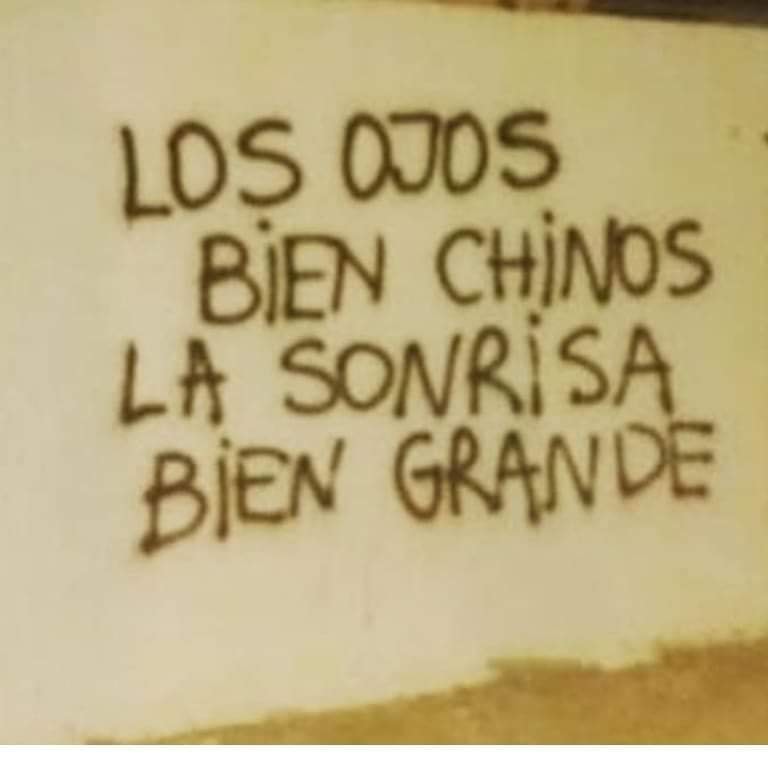 LOS OJOS
BiEN CHiNOS
LA SONRiSA
BiEN GRANDE